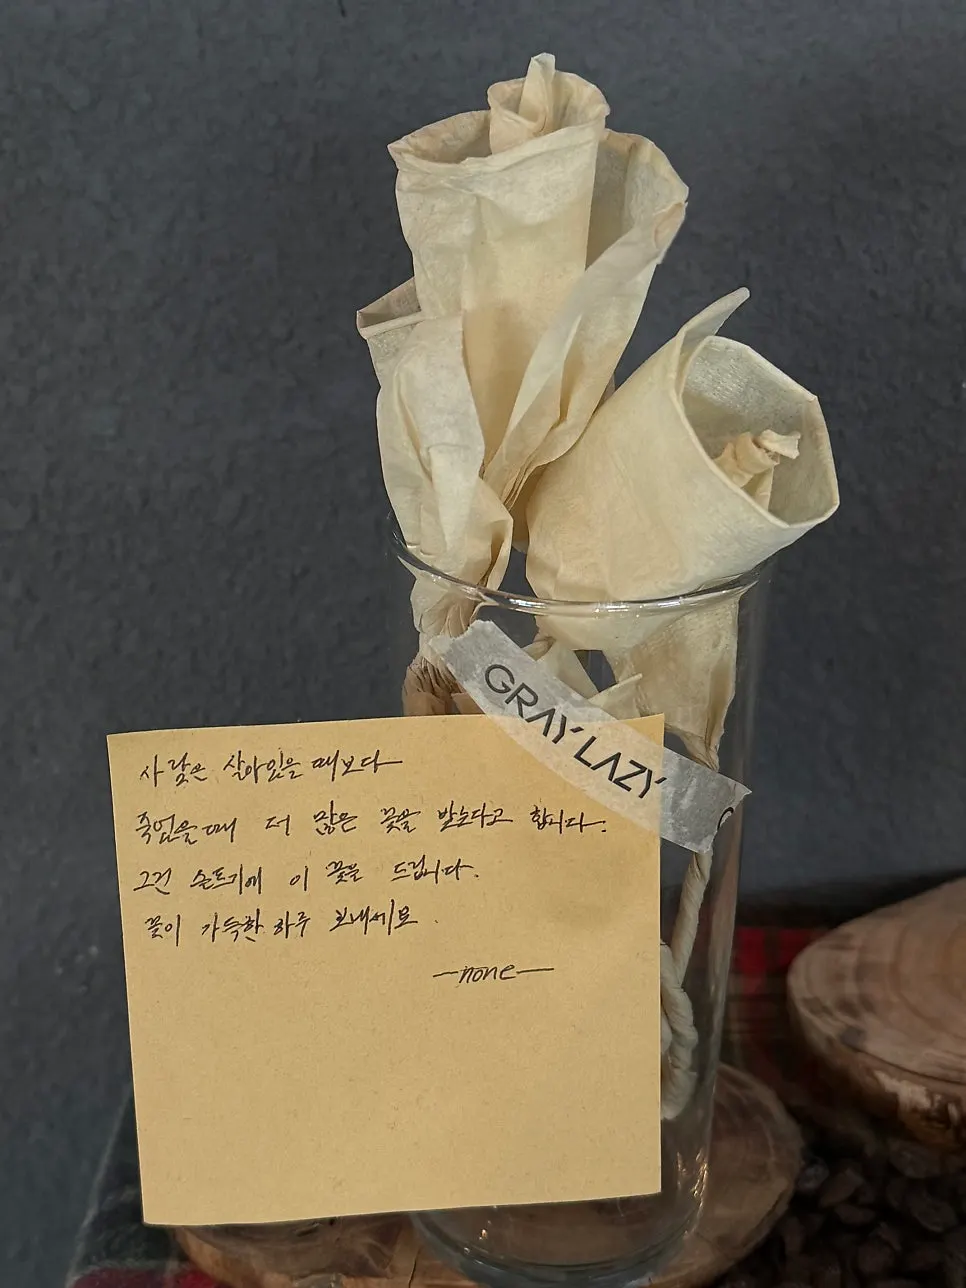 GRAY LAZY
사람은 살아있을 때보다
죽었을 때 더 많은 꽃을 받는다고 합니다.
그건 슬프기에 이 꽃을 드립니다.
꽃이 가득한 하루 보내세요.
—none—